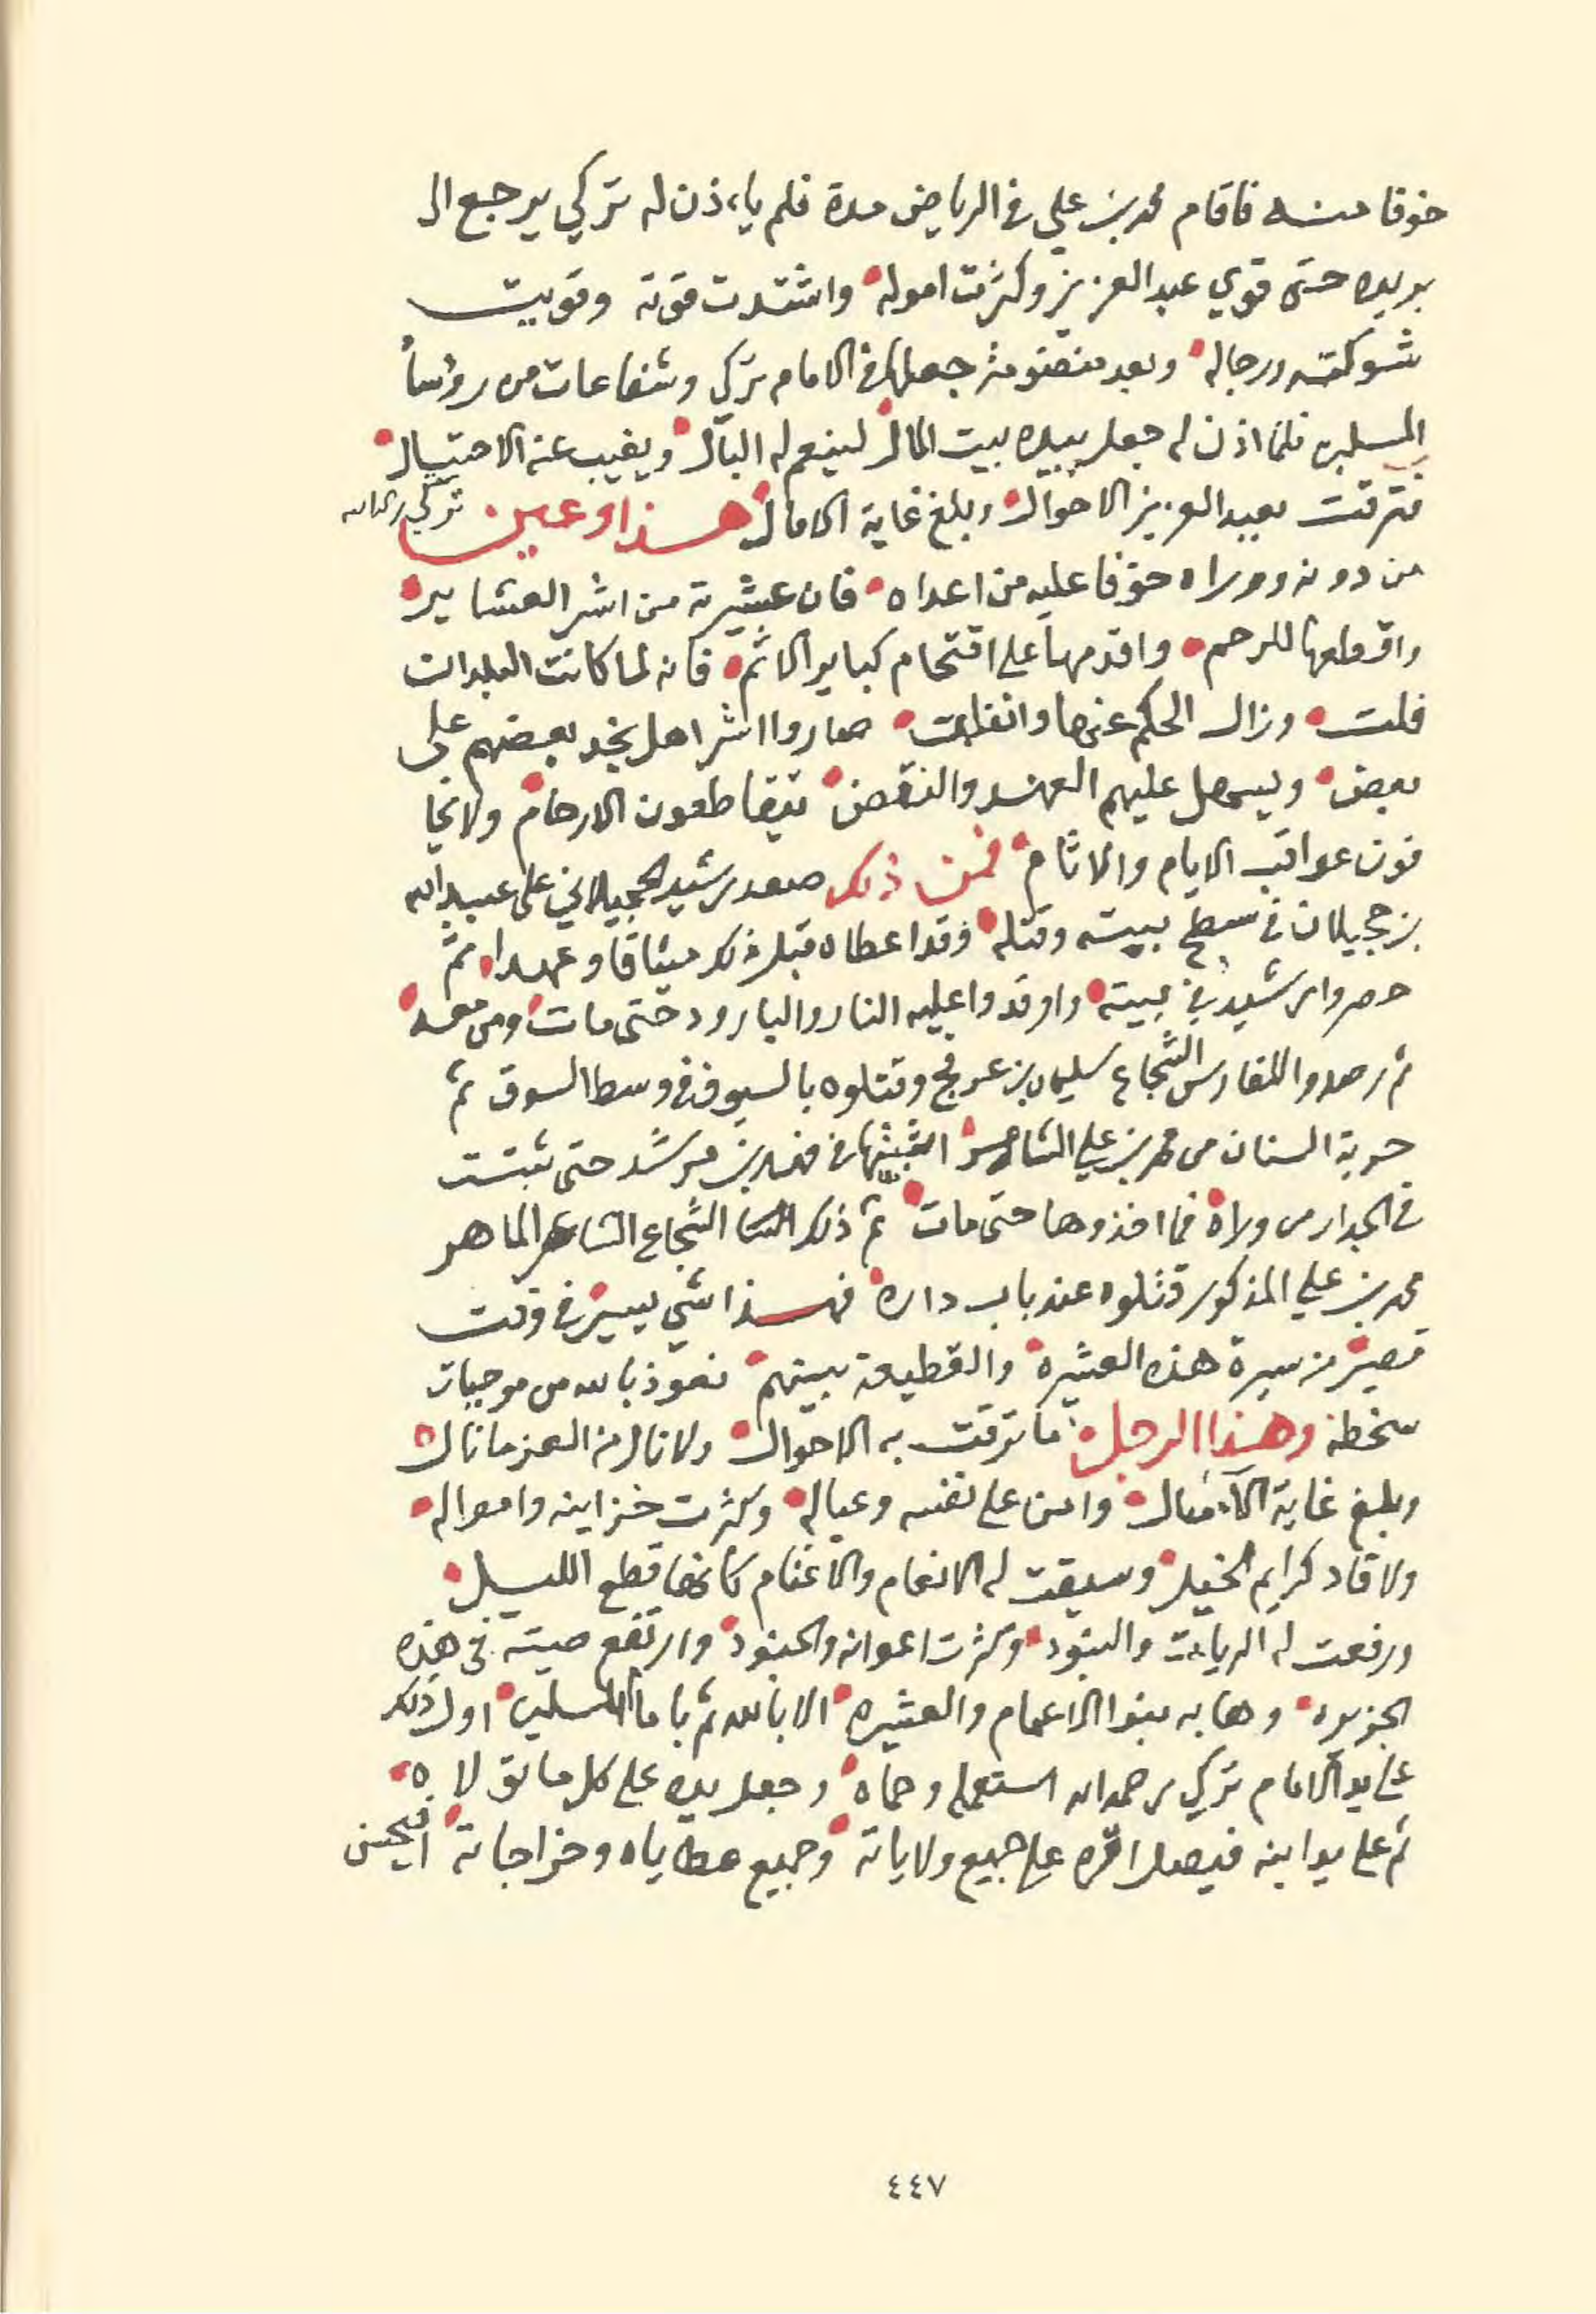 خوفا منه فاقام محمد بن علي في الرياض مدة فلم ياءذن له تركي يرجع الى
بريده حتى قوي عبد العزيز وكثرت اموله واشتدت قوته وقويت
شوكته ورجاله وبعد منضومة جعلها في الامام تركي وشفاعات من روٴسأ
المسلمين فلما اذن له جعل بيده بيت المال لينعم له البال ويغيب عنه الاحتيال
فترقت بعبد العزيز الاحوال وبلغ غاية الامال هذا وعين تركي رحمه الله
من دونه ووراه خوفا عليه من اعداه فان عشيرته من اشر العشاير
واقطعها للرحم واقدمها على اقتحام كباير الاثم فانه لما كانت البلدان
فلت وزال الحكم عنها وانفلت صاروا اشر اهل نجد بعضهم على
بعض ويسهل عليهم العهد والنقض يتقاطعون الارحام ولا يخا
فون عواقب الايام والاثام فمن ذلك صعد رشيد الحجيلاني على عبد الله
بن حجيلان في سطح بيته وقتله وقد اعطاه قبل ذلك ميثاقا وعهدا ثم
حصروا رشيد في بيته واوقدوا عليه النار والبارود حتى مات ومن معه
ثم رصدوا للفارس الشجاع سليمان بن عرفج وقتلوه بالسيوف في وسط السوق ثم
حربة السنان من محمد بن علي الشاعر اثبتها في فهد بن مرشد حتى ثبتت
في الجدار من وراه فما اخذوها حتى مات ثم ذلك الشجاع الشاعر الماهر
محمد بن علي المذكور قتلوه عند باب داره فهذا شي يسير في وقت
قصير من سيرة هذه العشيره والقطيعة بينهم نعوذ بالله من موجبات
سخطه وهذا الرجل ما ترقت به الاحوال ولا نال من العز ما نال
وبلغ غاية الآمال وامن على نفسه وعياله وكثرت خزاينه وامواله
ولا قاد كرايم الخيل وسيقت له الانعام والاغنام كانها قطع الليل
ورفعت له الريات والبنود وكثرت اعوانه والجنود وارتفع صيته في هذه
الجزيره وهابه بنوا الاعمام والعشيره الا بالله ثم بامام المسلمين اول ذلك
على يد الامام تركي رحمه الله استعمله وحماه وجعل يده على كل ما تولاه
ثم على يد ابنه فيصل اقره على جميع ولاياته وجميع عطاياه وخراجاته
٤٤٧